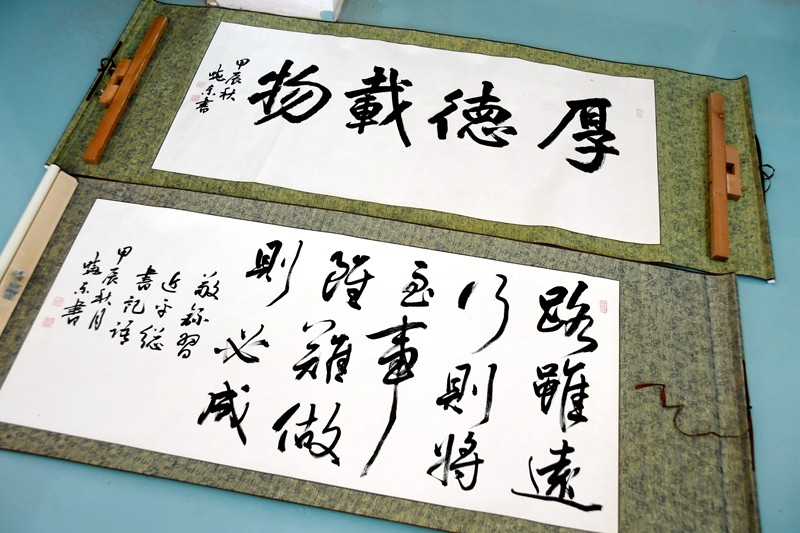 厚德載物
甲辰秋
曉东書
路雖遠
行則將
至事
雖難做
則必成
敬録習
近平總
書記語
甲辰秋月
曉东書